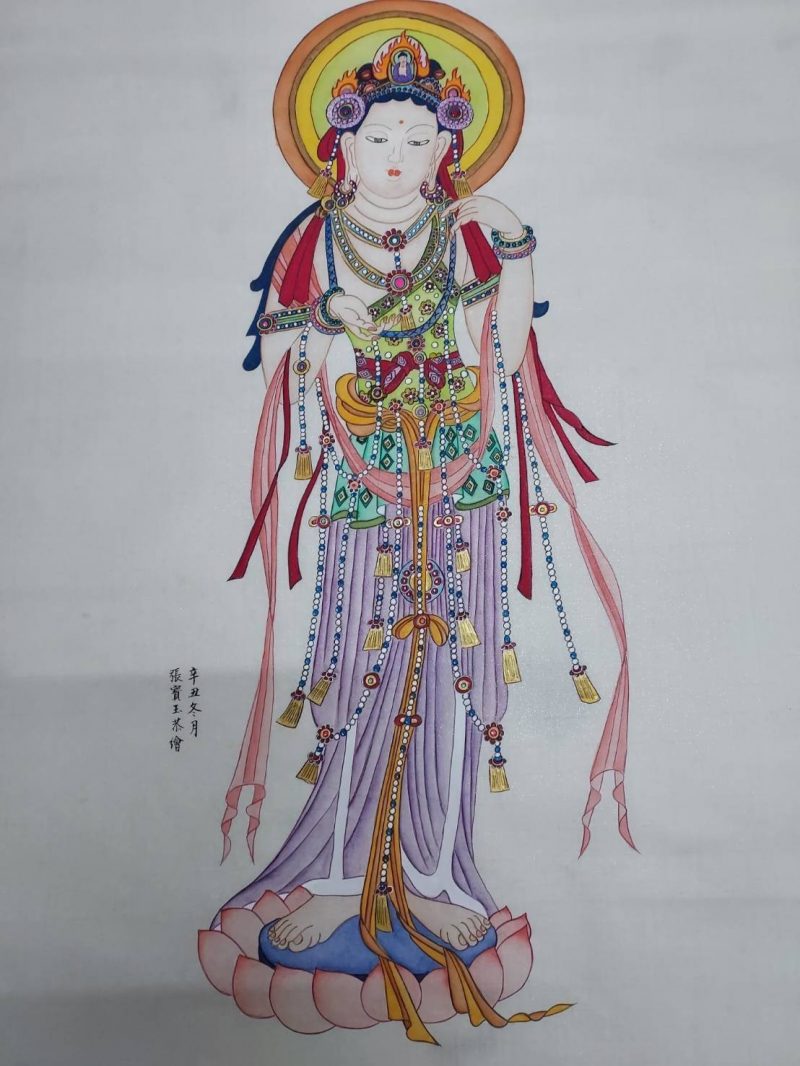 辛丑冬月
張寳玉恭繪